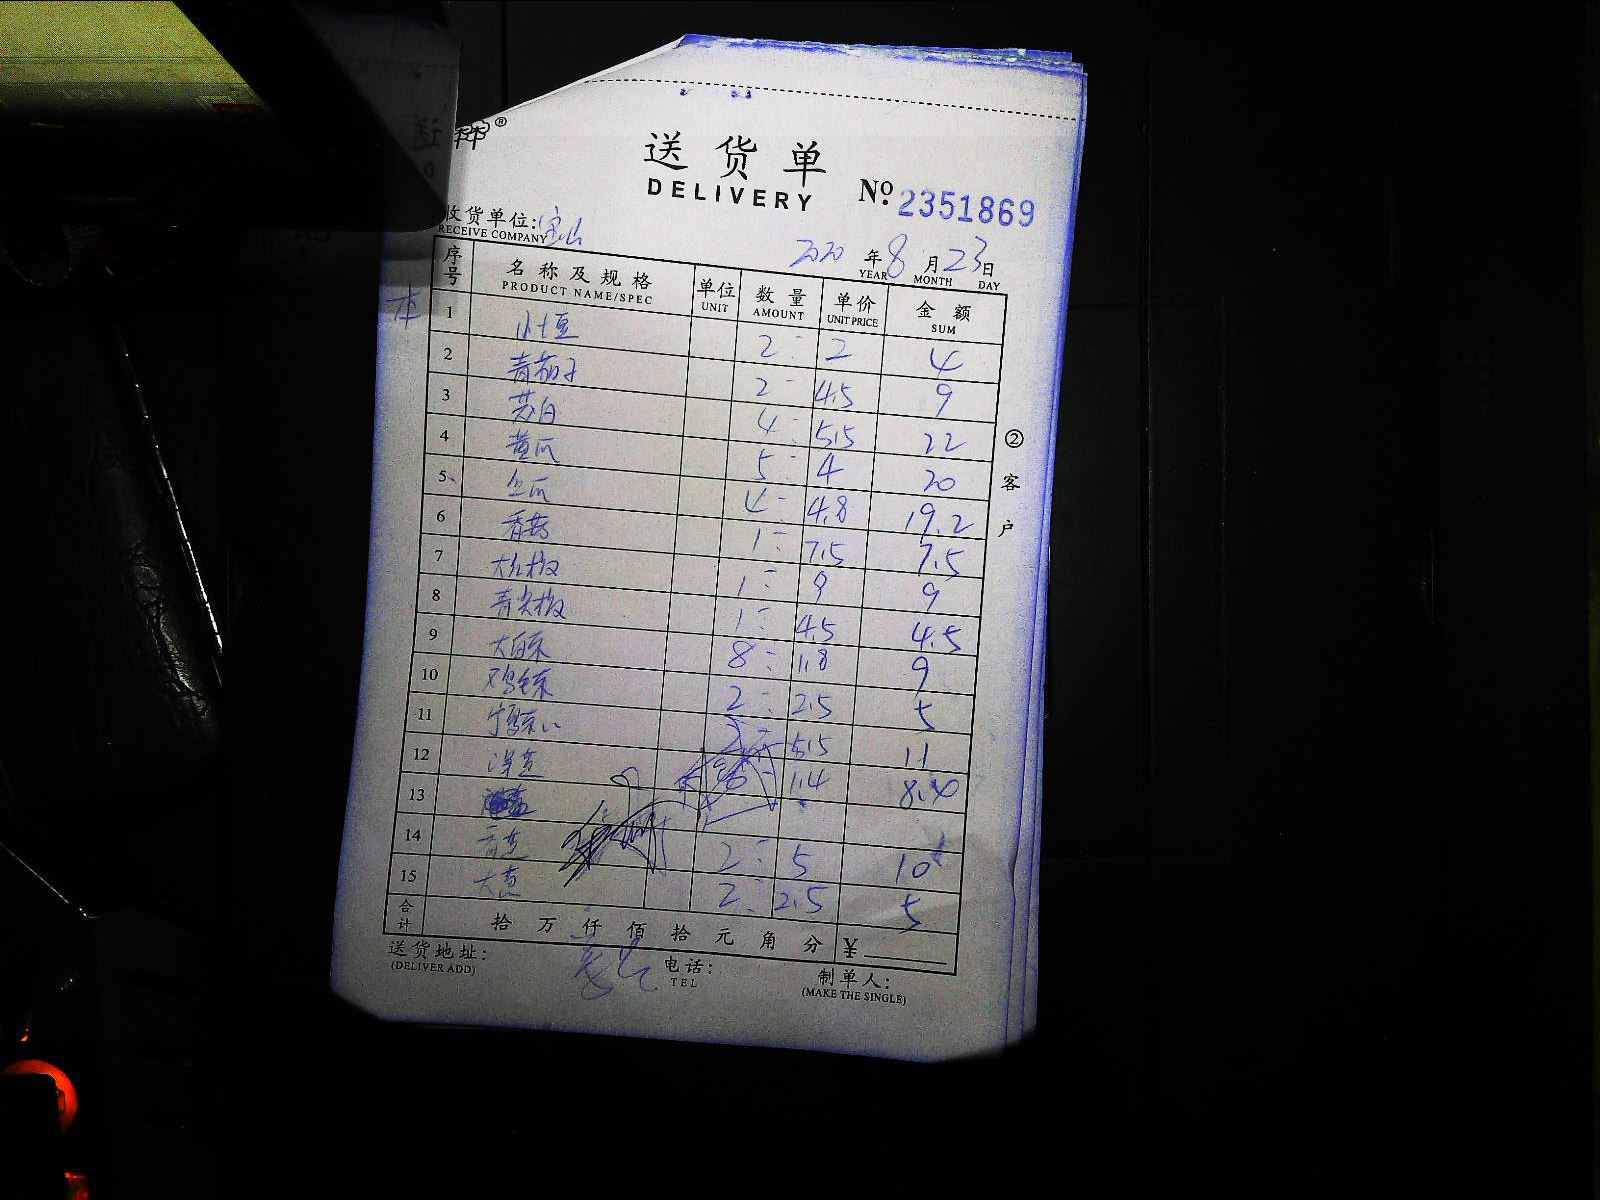 送货单
DELIVERY
№ 2351869
收货单位: 宝山
RECEIVE COMPANY
2020 年 8 月 23 日
YEAR MONTH DAY
序号 名称及规格 单位 数量 单价 金额
PRODUCT NAME/SPEC UNIT AMOUNT UNIT PRICE SUM
1 小土豆 2 2 4
2 青茄子 2 4.5 9
3 茭白 4 5.5 22
4 黄瓜 5 4 20
5 4 4.8 19.2
6 香菇 1 7.5 7.5
7 大红椒 1 9 9
8 青尖椒 1 4.5 4.5
9 大白菜 8 1.8 9
10 鸡毛菜 2 2.5 5
11 2 5.5 11
12 洋葱 6 1.4 8.4
13
14 2 5 10
15 大葱 2 2.5 5
合计 拾 万 仟 佰 拾 元 角 分 ¥
送货地址: 电话: 制单人:
(DELIVER ADD) TEL (MAKE THE SINGLE)
② 客户